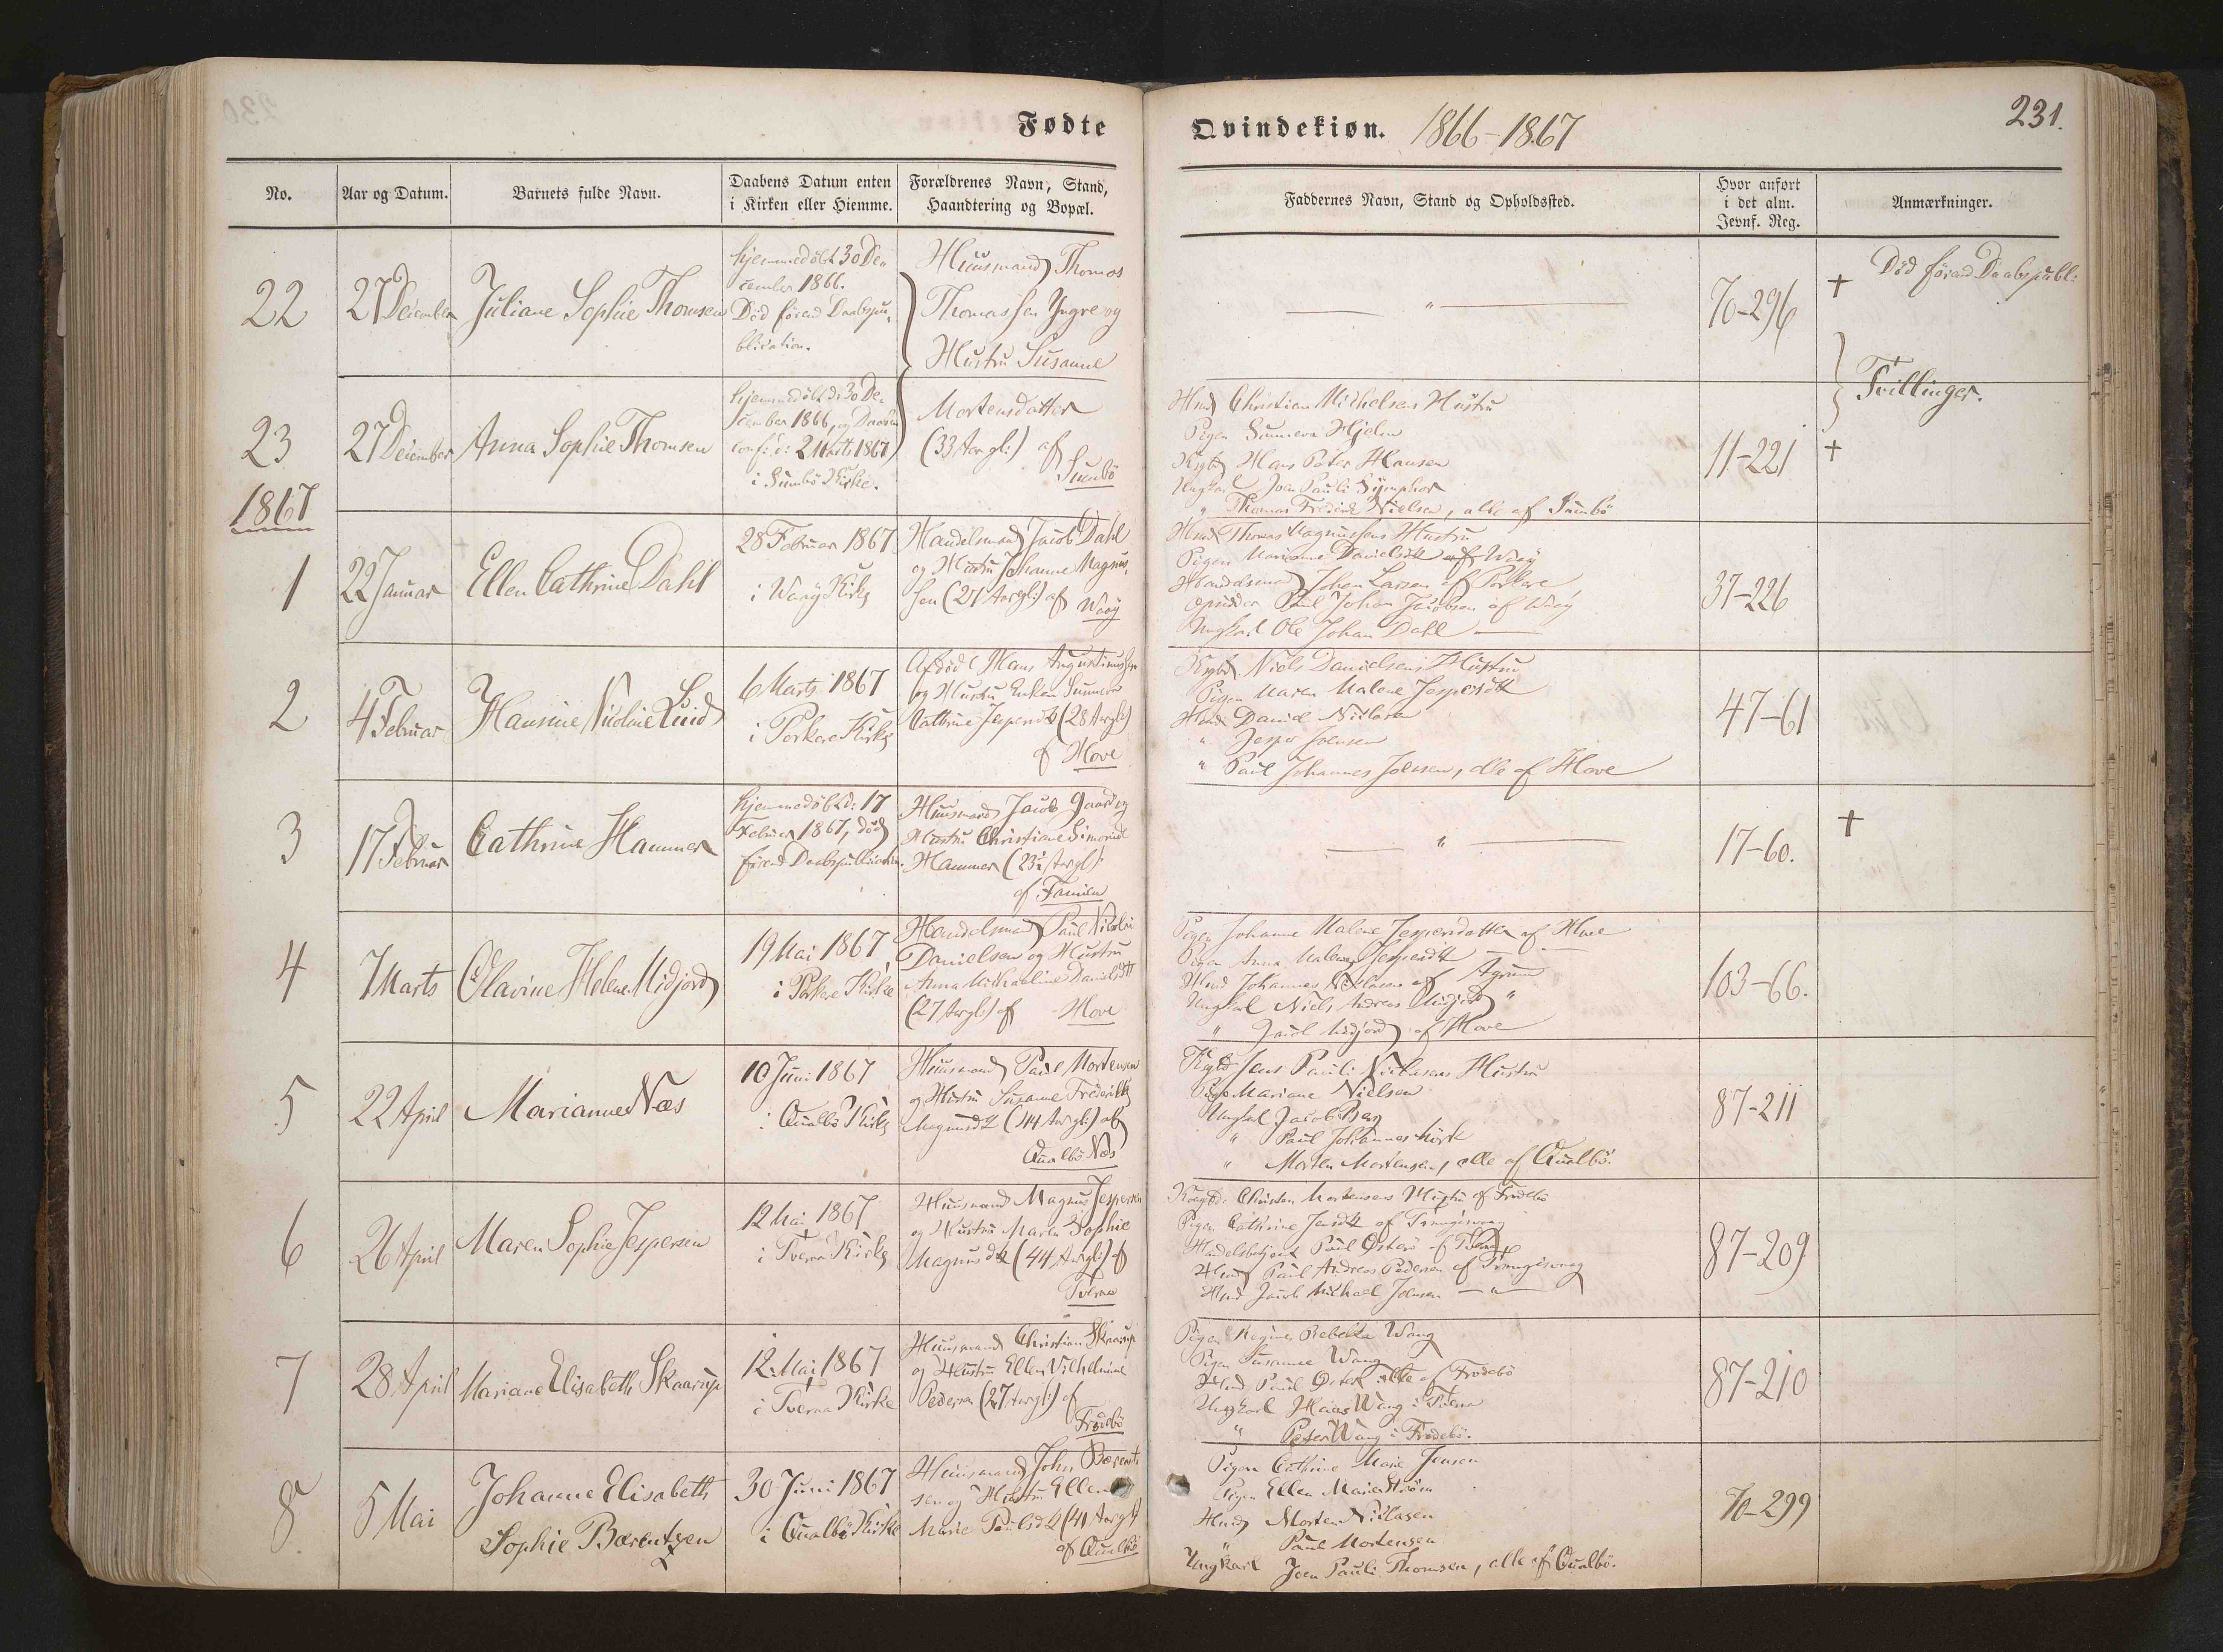 Fødte
Qvindekiøn. 1866-1867
231.
No.
Aar og Datum.
Barnets fulde Navn.
Daabens Datum enten
i Kirken eller Hiemme.
Forældrenes Navn, Stand,
Haandtering og Bopæl.
Faddernes Navn, Stand og Opholdssted.
Hvor anført
i det alm.
Jevnf. Reg.
Anmærkninger.
22
27 December
Juliane Sophie Thomsen
hjemmedøbt 30 De-
cember 1866.
Død førend Daabspu-
blication.
Huusmand Thomas
Thomassen Yngre og
Hustru Susanne
"
70-296
+
Død førend Daabspubl:
Tvillinger.
23
27 December
Anna Sophie Thomsen
hjemmedøbt d: 30 De-
cember 1866, og Daaben
conf: d: 2 Marts 1867
i Sumbø Kirke.
Mortensdatter
(33 Aar gl:) af
Sumbö
Hmd Christian Michelsens Hustru
Pigen Sunneva Hjelm
Kgbd Hans Peter Hansen
Ungkarl Joen Pauli Symphor
" Thomas Fredrik Nielsen, alle af Sumbö
11-221
+
1867
1
22 Januar
Ellen Cathrine Dahl
28 Februar 1867
i Waay Kirke
Handelsmand Jacob Dahl
og Hustru Johanne Magnus-
sen (27 Aar gl:) af Waay
Hmd Thomas Magnussens Hustru
Pigen Marianne Danielsdtt af Waay
Handelsmand Johan Larsen af Porkere
Poul Johan Jacobsen af Waay
Ungkarl Ole Johan Dahl
37-226
2
4 Februar
Hansine Nicoline Lüid
6 Marts 1867
i Porkere Kirke
Afdöde Hans Augustinussen
og Hustru Enken Sunneva
Cathrine Jespersdtt (28 Aar gl)
af Hove
Kgbd Niels Danielsens Hustru
Pigen Maren Malene Jespersdtt
Hmd Daniel Niclasen
" Jesper Joensen
" Paul Johannes Joensen, alle af Hove
47-61
3
17 Februar
Cathrine Hammer
hjemmedöbt d: 17
Februar 1867, död
förend Daabspublication.
Huusmand Jacob Gaard og
Hustru Christiane Simonsdt
Hammer (23½ Aar gl:)
af Famien
"
17-60.
+
4
7 Marts
Olavine Helene Midjord
19 Mai 1867
i Porkere Kirke
Handelsmand Paul Nicolai
Danielsen og Hustru
Anna Michaeline Danielsdtt
(27 Aar gl:) af Hove
Pigen Johanne Malene Jespersdatter af Hove
Pigen Anna Malene Jespersdtt
Hmd Johannes Niclasen af
Ungkarl Niels Andreas Midjord "
" Jacob Midjord af Hove
103-66.
5
22 April
Marianne Næs
10 Juni 1867
i Qualbö Kirke
Huusmand Paul Mortensen
og Hustru Susanne Frederikke
Magnusdt (44 Aar gl:) af
Qualbö Næs
Kgbd Jens Pauli Niclasens Hustru
Pigen Mariane Nielsen
Ungkarl Jacob Berg
" Paul Johannes
" Morten Mortensen, alle af Qualbö.
87-211
6
26 April
Maren Sophie Jespersen
12 Mai 1867
i Tveraa Kirke
Huusmand Magnus Jespersen
og Hustru Maren Sophie
Magnusdt (44 Aar gl:) af
Tveraa
Kongsbd. Christen Mortensens Hustru af Frodebö
Pigen Cathrine Jensdt af Trangisvaag
Handelsbetjent Paul Österö af Tveraa
Hmd Paul Andreas Pedersen af Trangisvaag
Hmd Jacob Michael Joensen "
87-209
7
28 April
Mariane Elisabeth Skaarup
12 Mai 1867
i Tveraa Kirke
Huusmand Christian Skaarup
og Hustru Ellen Vilhelmine
Pedersen (27 Aar gl:) af
Frodebö
Pigen Regine Rebekka Wang
Pigen Susanne Wang
Hmd Paul alle af Frodebö
Ungkarl Hans Wang i Tveraa
" Peter Wang i Frodebö.
87-210
8
5 Mai
Johanne Elisabeth
Sophie Bærentsen
30 Juni 1867
i Qualbö Kirke
Huusmand John Bærent-
sen og Hustru Ellen
Marie Poulsdt (41 Aar gl:)
af Qualbö
Pigen Cathrine Marie Jensen
Pigen Ellen Marie Ström
Hmd Morten Niclasen
" Paul Mortensen
Ungkarl Joen Pauli Thomsen, alle af Qualbö.
70-299